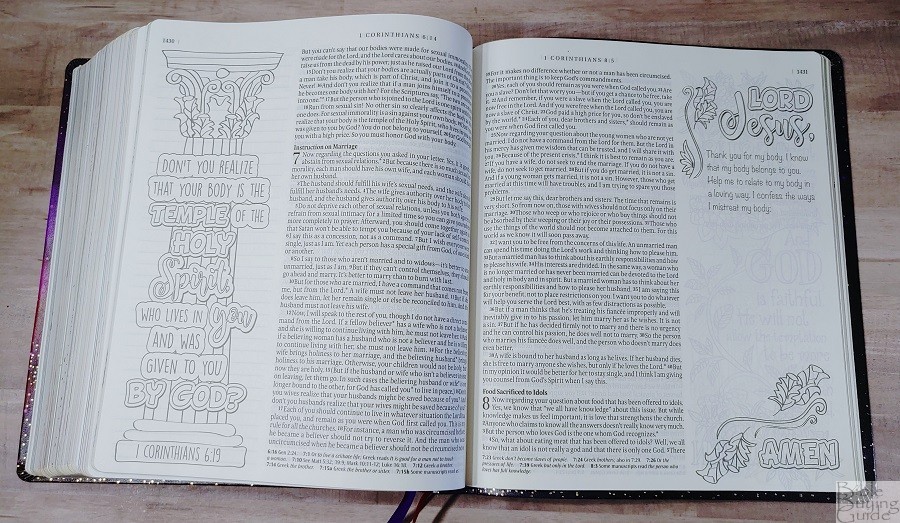 1430
1 CORINTHIANS 6:14
DON'T YOU REALIZE
THAT YOUR BODY IS THE
TEMPLE OF THE
HOLY
Spirit,
WHO LIVES IN You
AND WAS
GIVEN TO YOU
BY GOD?
1 CORINTHIANS 6:19
But you can't say that our bodies were made for sexual
were made for the Lord, and the Lord cares about our bodies.
raise us from the dead by his power, just as he raised our Lord from
15 Don't you realize that your bodies are actually parts of
a man take his body, which is part of Christ, and join it to a
Never! 16 And don't you realize that if a man joins himself to a
he becomes one body with her? For the Scriptures say, "The two
into one." 17 But the person who is joined to the Lord is one spirit
18 Run from sexual sin! No other sin so clearly affects the body
one does. For sexual immorality is a sin against your own body.
realize that your body is the temple of the Holy Spirit, who lives in
was given to you by God? You do not belong to yourself,
you with a high price. So you must honor God with your body.
Instruction on Marriage
7 Now regarding the questions you asked in your letter. Yes, it is
abstain from sexual relations. 2 But because there is so much
morality, each man should have his own wife, and each woman
her own husband.
3 The husband should fulfill his wife's sexual needs, and the
fulfill her husband's needs. 4 The wife gives authority over her body
husband, and the husband gives authority over his body to his
5 Do not deprive each other of sexual relations, unless you both
refrain from sexual intimacy for a limited time so you can give
more completely to prayer. Afterward, you should come together
that Satan won't be able to tempt you because of your lack of
6 I say this as a concession, not as a command. 7 But I wish
single, just as I am. Yet each person has a special gift from God, of
or another.
8 So I say to those who aren't married and to widows—it's better to
unmarried, just as I am. 9 But if they can't control themselves, they
go ahead and marry. It's better to marry than to burn with lust.
10 But for those who are married, I have a command that comes not
me, but from the Lord. A wife must not leave her husband. 11 But if
does leave him, let her remain single or else be reconciled to him. And
husband must not leave his wife.
12 Now, I will speak to the rest of you, though I do not have a direct
mand from the Lord. If a fellow believer has a wife who is not a
and she is willing to continue living with him, he must not leave her.
if a believing woman has a husband who is not a believer and he is
to continue living with her, she must not leave him. 14 For the believing
wife brings holiness to her marriage, and the believing husband brings
holiness to his marriage. Otherwise, your children would not be holy, but
now they are holy. 15 (But if the husband or wife who isn't a believer
on leaving, let them go. In such cases the believing husband or wife is no
longer bound to the other, for God has called you to live in peace.)
you wives realize that your husbands might be saved because of you?
don't you husbands realize that your wives might be saved because of
17 Each of you should continue to live in whatever situation the Lord
placed you, and remain as you were when God first called you. This is my
rule for all the churches. 18 For instance, a man who was circumcised
he became a believer should not try to reverse it. And the man who was
uncircumcised when he became a believer should not be circumcised
1 CORINTHIANS 8:5
1431
19 For it makes no difference whether or not a man has been circumcised.
The important thing is to keep God's commandments.
20 Yes, each of you should remain as you were when God called you. 21 Are
you a slave? Don't let that worry you—but if you get a chance to be free, take
it. 22 And remember, if you were a slave when the Lord called you, you are
now free in the Lord. And if you were free when the Lord called you, you are
now a slave of Christ. 23 God paid a high price for you, so don't be enslaved
by the world. 24 Each of you, dear brothers and sisters, should remain as
you were when God first called you.
25 Now regarding your question about the young women who are not yet
married. I do not have a command from the Lord for them. But the Lord in
his mercy has given me wisdom that can be trusted, and I will share it with
you. 26 Because of the present crisis, I think it is best to remain as you are.
27 If you have a wife, do not seek to end the marriage. If you do not have a
wife, do not seek to get married. 28 But if you do get married, it is not a sin.
And if a young woman gets married, it is not a sin. However, those who get
married at this time will have troubles, and I am trying to spare you those
problems.
29 But let me say this, dear brothers and sisters: The time that remains is
very short. So from now on, those with wives should not focus only on their
marriage. 30 Those who weep or who rejoice or who buy things should not
be absorbed by their weeping or their joy or their possessions. 31 Those who
use the things of the world should not become attached to them. For this
world as we know it will soon pass away.
32 I want you to be free from the concerns of this life. An unmarried man
can spend his time doing the Lord's work and thinking how to please him.
33 But a married man has to think about his earthly responsibilities and how
to please his wife. 34 His interests are divided. In the same way, a woman who
is no longer married or has never been married can be devoted to the Lord
and holy in body and in spirit. But a married woman has to think about her
earthly responsibilities and how to please her husband. 35 I am saying this
for your benefit, not to place restrictions on you. I want you to do whatever
will help you serve the Lord best, with as few distractions as possible.
36 But if a man thinks that he's treating his fiancée improperly and will
inevitably give in to his passion, let him marry her as he wishes. It is not
a sin. 37 But if he has decided firmly not to marry and there is no urgency
and he can control his passion, he does well not to marry. 38 So the person
who marries his fiancée does well, and the person who doesn't marry does
even better.
39 A wife is bound to her husband as long as he lives. If her husband dies,
she is free to marry anyone she wishes, but only if he loves the Lord. 40 But
in my opinion it would be better for her to stay single, and I think I am giving
you counsel from God's Spirit when I say this.
Food Sacrificed to Idols
8 Now regarding your question about food that has been offered to idols.
Yes, we know that "we all have knowledge" about this issue. But while
knowledge makes us feel important, it is love that strengthens the church.
2 Anyone who claims to know all the answers doesn't really know very much.
3 But the person who loves God is the one whom God recognizes.
4 So, what about eating meat that has been offered to idols? Well, we all
know that an idol is not really a god and that there is only one God.
LORD
Jesus,
Thank you for my body. I know
that my body belongs to you.
Help me to relate to my body in
a loving way. I confess the ways
I mistreat my body:
AMEN
Bible
Buying
Guide